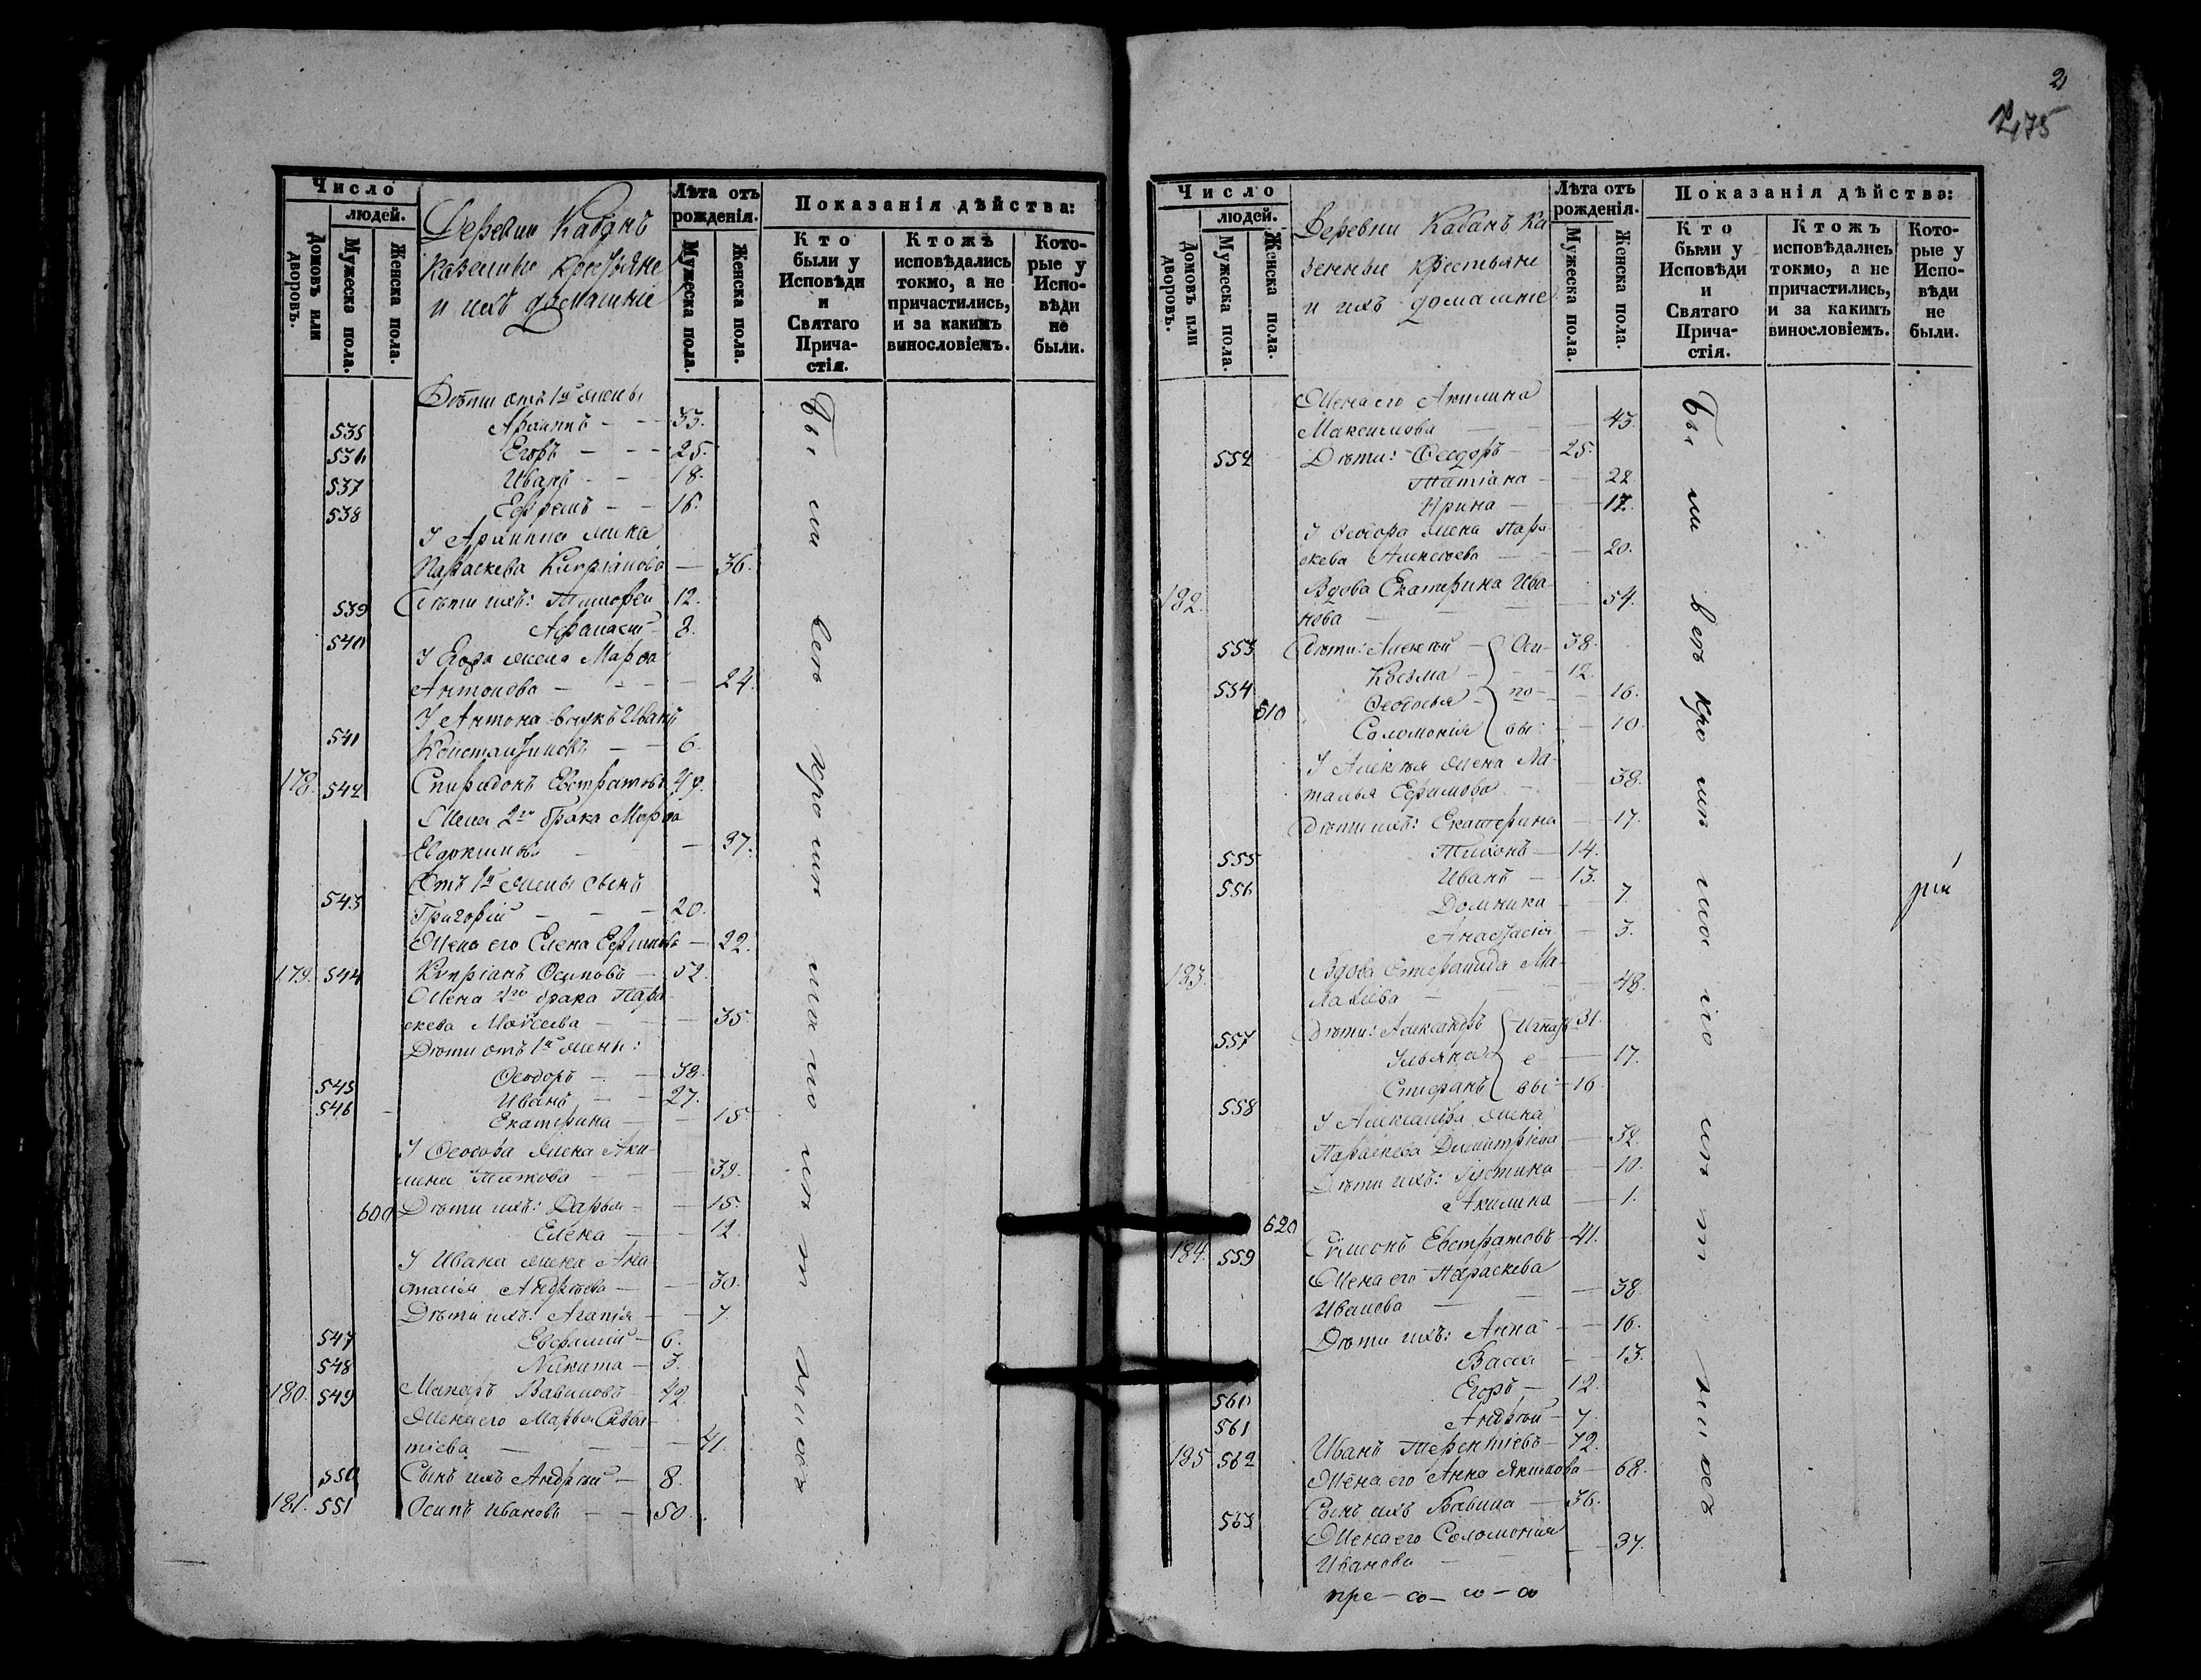 Число
людей.
Домовъ или дворовъ.
Мужеска пола.
Женска пола.
Деревни Кабанъ
казенные крестьяне
и ихъ домашніе
Лѣта отъ рожденія.
Мужеска пола.
Женска пола.
Показанія дѣйства:
Кто были у Исповѣди и Святаго Прича-стія.
Ктожъ исповѣдались токмо, а не причастились, и за какимъ винословіемъ.
Кото-рые у Испо-вѣди не были.
Дѣти отъ 1й жены
535 Архипъ - - 33.
536 Егоръ - - 25.
537 Иванъ - - 18.
538 Ефремъ - - 16.
У Архипа жена
Параскева Кипріанова - 36.
539 Дѣти ихъ: Тимофей 12.
540 Афанасій 8.
У Егора жена Марфа
Антонова - - - 24.
У Антона внукъ Иванъ
541 Константиновъ - - 6.
178. 542 Спиридонъ Евстратовъ 49.
Жена 2го брака Марфа
Евдокимова - - 37.
Отъ 1й жены сынъ
543 Григорій - - - 20.
Жена его Елена Ефимова - 22.
179. 544 Кипріанъ Осиповъ - 52.
Жена 2го брака Пара-
скева Моисеева - - 35.
Дѣти отъ 1й жены:
545 Ѳеодоръ - - 38.
546 Иванъ - - 27.
Екатерина - - 15.
У Ѳеодора жена Аки-
лина Титова - - 39.
600 Дѣти ихъ: Дарья - - 15.
Елена - - 12.
У Ивана жена Ана
стасія Андреева - - 30.
Дѣти ихъ: Агапія - - 7.
547 Евфимій - 6.
548 Никита - 3.
180. 549 Макаръ Вавиловъ - 42.
Жена его Марья Савва-
тіева - - - 41.
550 Сынъ ихъ Андрей - 8.
181. 551 Осипъ Ивановъ - - 50.
Бы ли всѣ кро мѣ ма ло лѣ т нихъ
2
475
Число
людей.
Домовъ или дворовъ.
Мужеска пола.
Женска пола.
Деревни Кабанъ ка-
зенные крестьяне
и ихъ домашніе
Лѣта отъ рожденія.
Мужеска пола.
Женска пола.
Показанія дѣйства:
Кто были у Исповѣди и Святаго Прича-стія.
Ктожъ исповѣдались токмо, а не причастились, и за какимъ винословіемъ.
Кото-рые у Испо-вѣди не были.
Жена его Акилина
Максимова - - - 43.
552 Дѣти: Ѳеодоръ - 25.
Татіана - - 22
Ирина - - 17.
У Ѳеодора жена Пара
скева Алексѣева - - 20.
182. Вдова Екатерина Ива
нова - - - 54.
553 Дѣти: Алексѣй - Оси- 38.
554 Козьма - - 12.
610 Ѳеодосья - по- - 16.
Соломонія вы: - 10.
У Алексѣя жена На-
талья Ефимова - - 38.
Дѣти ихъ: Екатерина - 17.
555 Тихонъ - 14.
556 Иванъ - 13.
Домника - 7.
Анастасія - 3.
183. Вдова Степанида Ма-
лахіева - - - 48.
557 Дѣти: Александръ Игнать 31.
Ульяна е - 17.
558 Стефанъ вы: 16.
У Александра жена
Параскева Димитріева - 32.
Дѣти ихъ: Іустина - 10.
620 Акилина - 1.
184. 559 Сѵмеонъ Евстратовъ - 41.
Жена его Параскева
Иванова - - - 38.
Дѣти ихъ: Анна - - 16.
Васса - - 13.
560 Егоръ - 12.
561 Андрей - 7.
185 562 Иванъ Терентіевъ - 72.
Жена его Анна Якимова - 68.
563 Сынъ ихъ Вавила - 36.
Жена его Соломонія
Иванова - - - 37.
пре - ѡ - ѡ - ѡ
Бы ли всѣ кро мѣ ма ло лѣ т нихъ
рія